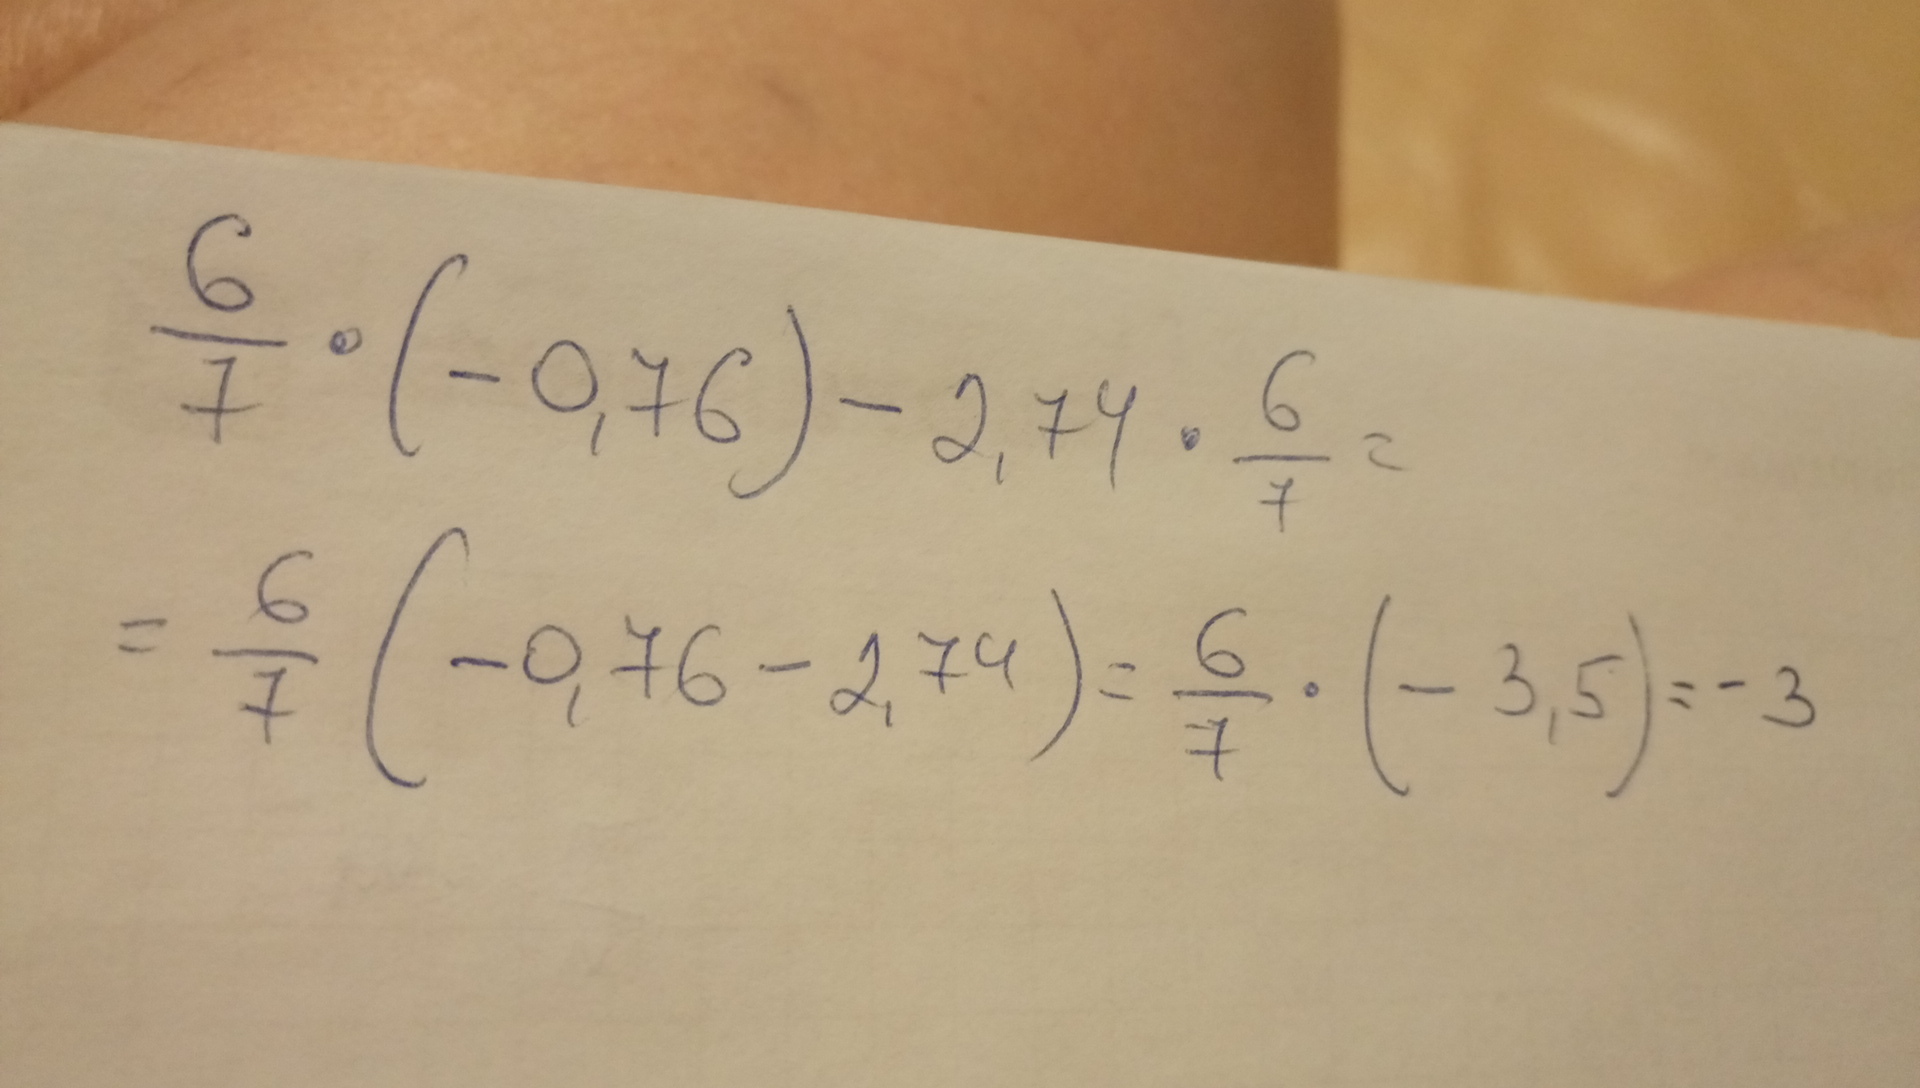 6/7 · (-0,76) - 2,74 · 6/7 =
= 6/7 (-0,76 - 2,74) = 6/7 · (-3,5) = -3